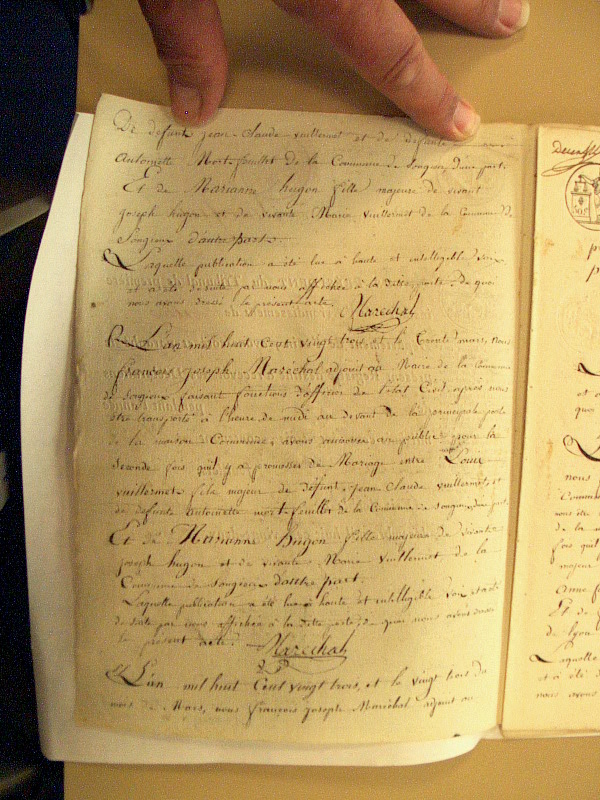 De defunt jean-Claude vuillermet et de defunte
Antoinette Mort-feuillet de la Commune de Songieux d'une part.
Et de Marianne hugon fille majeure de vivant
joseph hugon et de vivante Marie vuillermet de la Commune De
Songieux d'autre part.
Laquelle publication a été lue à haute et intelligible voix
et a été de suite par nous affichée à la ditte porte. De quoi
nous avons dressé le présent acte. Maréchal
L'an mil huit Cent vingt trois et le trente mars, nous
françois joseph Maréchal adjoint au Maire de la Commune
de Songieux faisant fonctions d'officier de l'état Civil après nous
être transporté à l'heure de midi au devant de la principale porte
de la maison Commune, avons annoncé au public pour la
seconde fois qu'il y a promesses de Mariage entre Louis
vuillermet fils majeur de défunt jean Claude vuillermet et
de defunte antoinette mort feuillet de la Commune de Songieux d'une part
Et de Marianne hugon fille majeure de vivant
joseph hugon et de vivante Marie vuillermet de la
Commune de Songieux d'autre part.
Laquelle publication a été lue à haute et intelligible voix et a été
de suite par nous affichée à la ditte porte, de quoi nous avons dressé
le présent acte. Maréchal
L'an mil huit Cent vingt trois, et le vingt trois du
mois de Mars, nous françois joseph Maréchal adjoint au